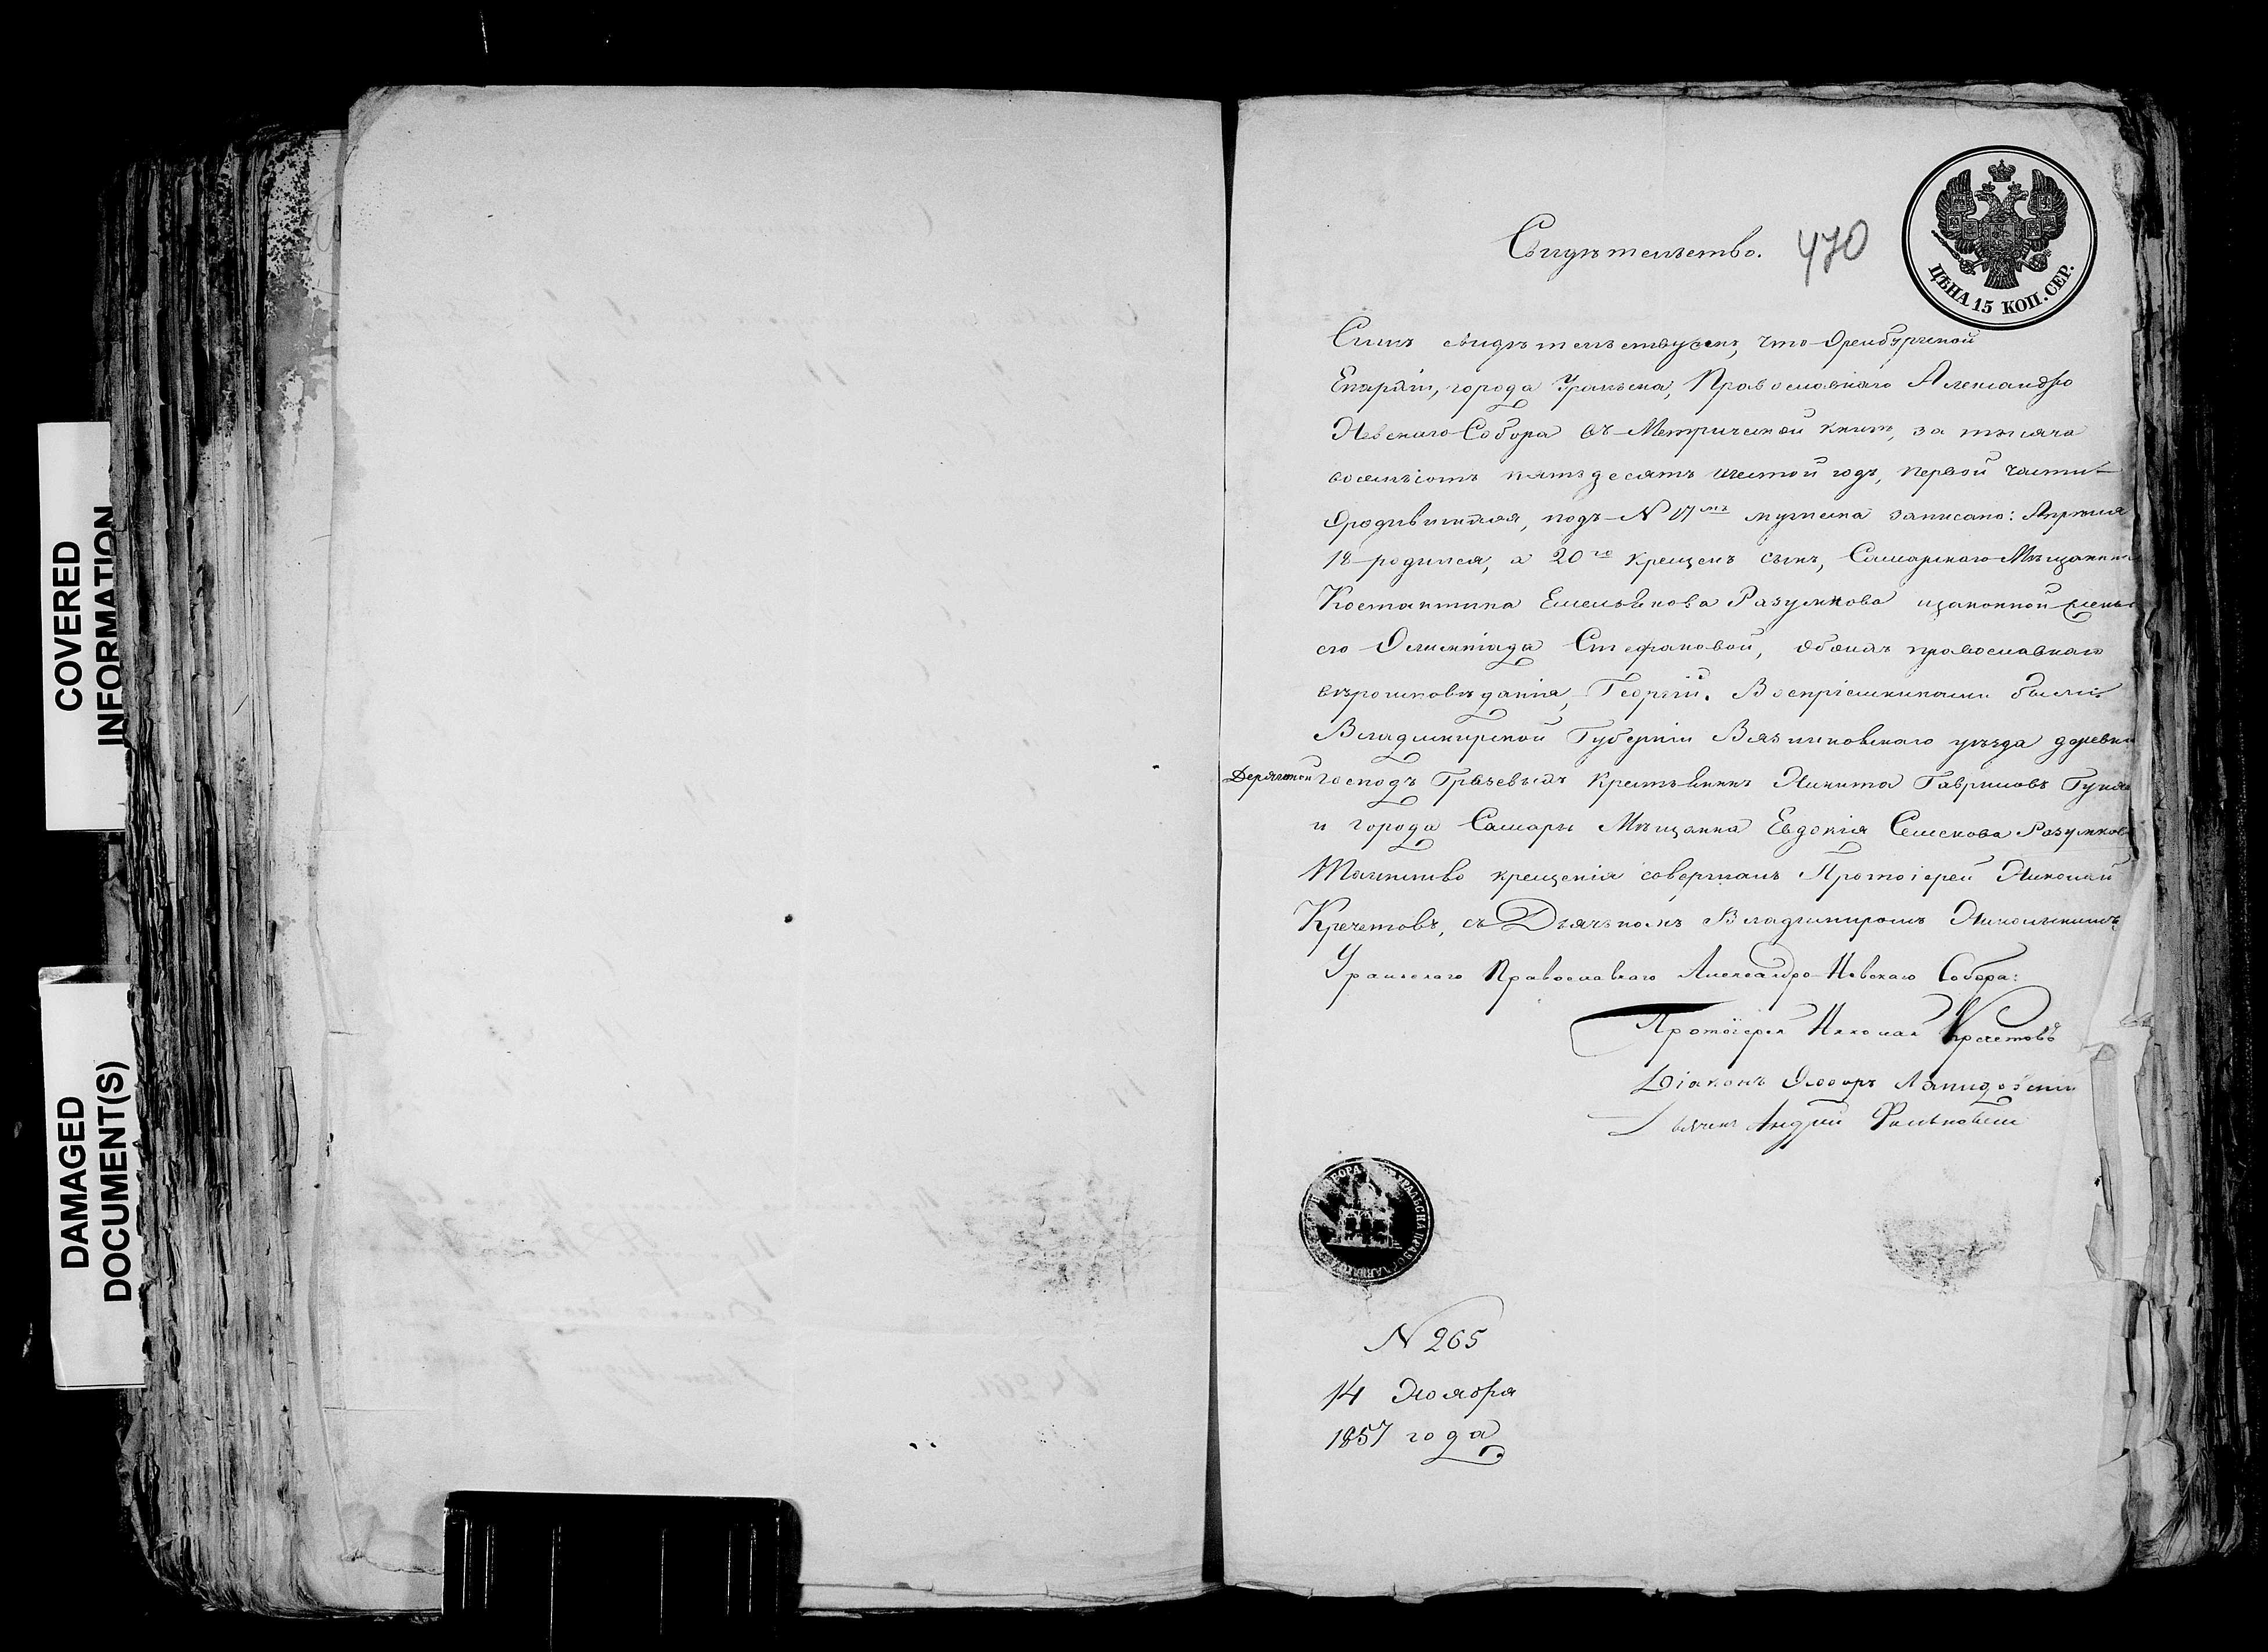 COVERED
INFORMATION
DAMAGED
DOCUMENT(S)
Свидѣтельство.
470
ЦѢНА 15 КОП. СЕР.
Симъ свидѣтельствуемъ, что Оренбургской
Епархіи, города Уральска, Православнаго Александро
Невскаго Собора въ Метрической книгѣ, за тысяча
восемьсотъ пятьдесятъ шестой годъ, первой части
о родившихся, подъ N 17мъ мужеска записано: Апрѣля
18 родился, а 20го крещенъ сынъ, Самарскаго Мѣщанина
Костантина Емельянова Разумнова и законной жены
его Олимпіада Стефановой, обоихъ православнаго
вѣроисповѣданія, Георгій. Воспріемниками были
Владимирской Губерніи Вязниковскаго уѣзда деревни
господъ крестьянинъ Никита Гавриловъ
и города Самары Мѣщанка Евдокія Семенова Разумнова
Таинство крещенія совершалъ Протоіерей Николай
Кречетовъ, съ Дьячкомъ Владимиромъ Никольскимъ
Уральского Православнаго Александро-Невскаго Собора:
Протоіерей Николай Кречетовъ
Діаконъ Ѳеодоръ
Дьячекъ Андрей
N 265
14 Ноября
1857 года